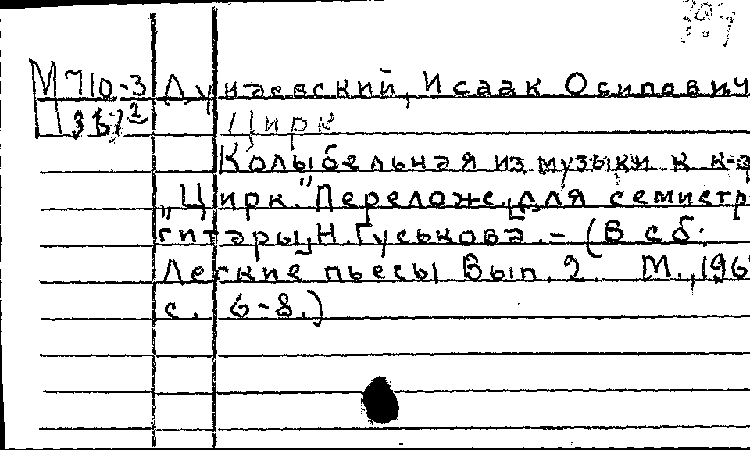 М 710-3 Дунаевский, Исаак Осипович
Цирк
Колыбельная из музыки к к-ф
„Цирк." Переложе. для семистр.
гитары Н. Гуськова. - (В сб.
Легкие пьесы Вып. 2. М., 196
с. 6-8.)